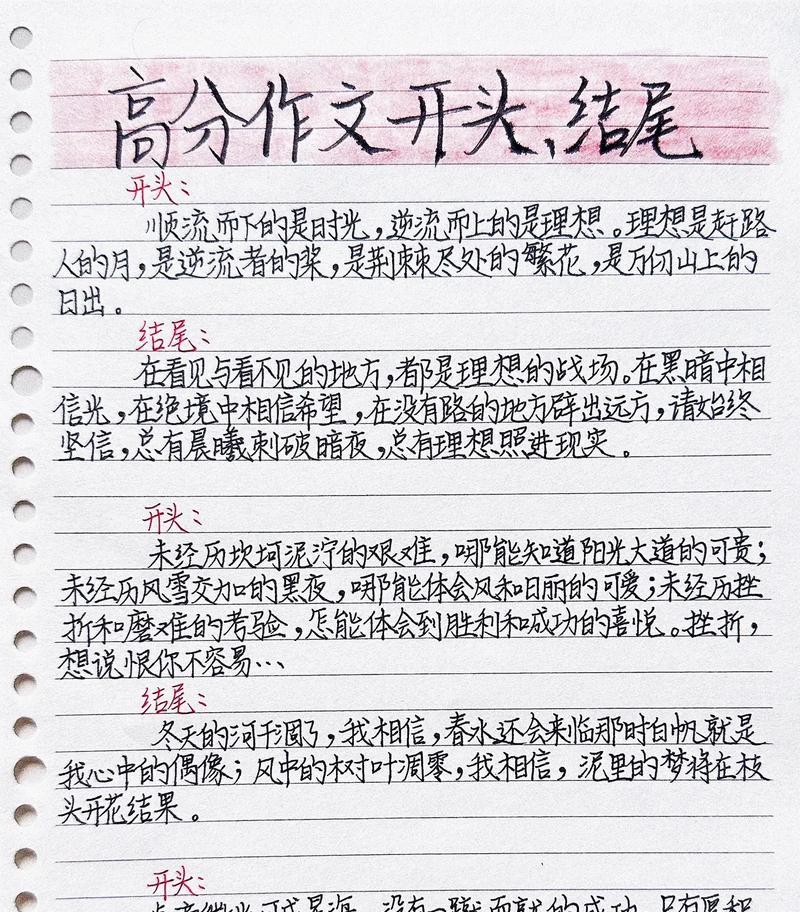 高分作文开头、结尾
开头：
顺流而下的是时光，逆流而上的是理想。理想是赶路
人的月，是逆流者的桨，是荆棘尽处的繁花，是万仞山上的
日出。
结尾：
在看见与看不见的地方，都是理想的战场。在黑暗中相
信光，在绝境中相信希望，在没有路的地方辟出远方，请始终
坚信，总有晨曦刺破暗夜，总有理想照进现实。
开头：
未经历坎坷泥泞的艰难，哪能知道阳光大道的可贵；
未经历风雪交加的黑夜，哪能体会风和日丽的可爱；未经历挫
折和磨难的考验，怎能体会到胜利和成功的喜悦。挫折，
想说恨你不容易…
结尾：
冬天的河干涸了，我相信，春水还会来临那时白帆就是
我心中的偶像；风中的树叶凋零，我相信，泥里的梦将在枝
头开花结果。
开头：
没有一蹴而就的成功，只有